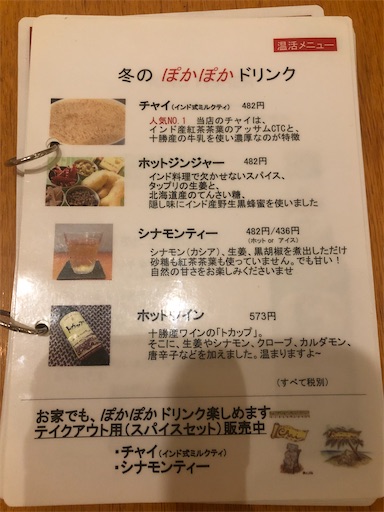 温活メニュー
冬の ぽかぽかドリンク
チャイ(インド式ミルクティ) 482円
人気NO.1 当店のチャイは、
インド産紅茶茶葉のアッサムCTCと、
十勝産の牛乳を使い濃厚なのが特徴
ホットジンジャー 482円
インド料理で欠かせないスパイス、
タップリの生姜と、
北海道産のてんさい糖、
隠し味にインド産野生黒蜂蜜を使いました
シナモンティー 482円/436円
(ホット or アイス)
シナモン(カシア)、生姜、黒胡椒を煮出しただけ
砂糖も紅茶茶葉も使っていません。でも甘い!
自然の甘さをお楽しみくださいませ
ホットワイン 573円
十勝産ワインの「トカップ」。
そこに、生姜やシナモン、クローブ、カルダモン、
唐辛子などを加えました。温まりますよ~
(すべて税別)
お家でも、ぽかぽかドリンク楽しめます
テイクアウト用(スパイスセット)販売中
・チャイ(インド式ミルクティ)
・シナモンティー